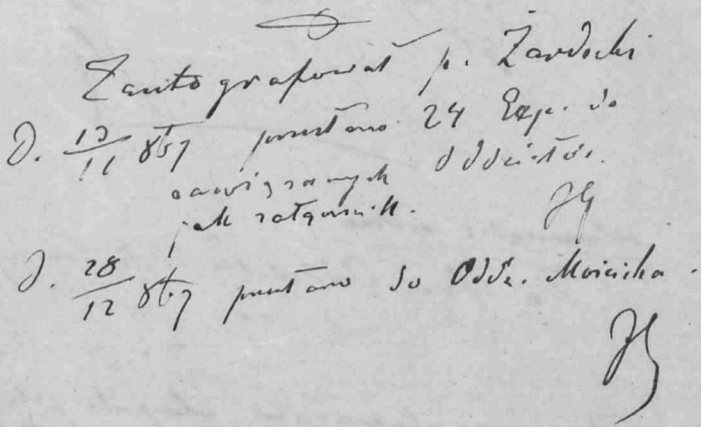 Zautografował p. Żardecki
D. 17/11 889 przesłano 24 Egz. do
zawiązanych Oddziałów.
jak załącznik.
D. 28/12 889 przesłano do Oddz. Mościska.